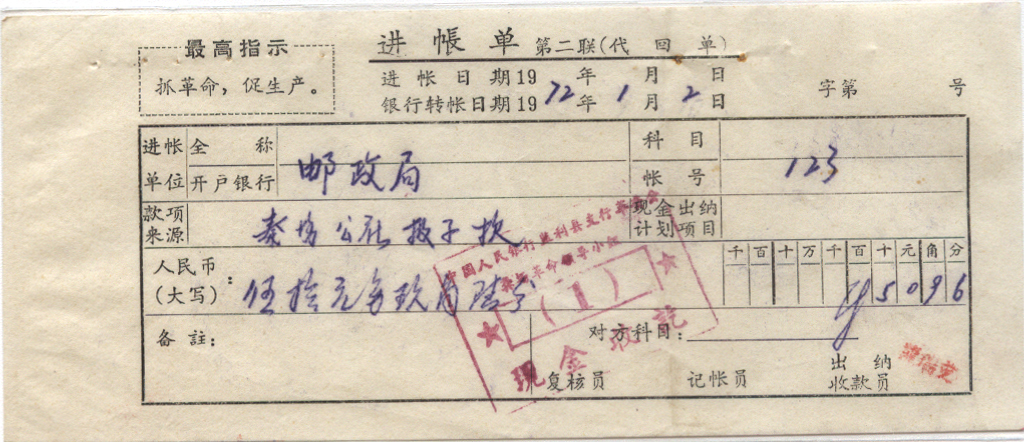 最高指示
抓革命，促生产。
进帐单 第二联（代回单）
进帐日期19 年 月 日
银行转帐日期1972年1月2日
字第 号
进帐单位
全称
开户银行
邮政局
科目
帐号
123
款项来源
公社报子款
现金出纳计划项目
人民币（大写）：
伍拾元另玖角陆分
千百十万千百十元角分
¥5096
中国人民银行监利县支行革委会
革命领导小组
（1）
现金收讫
备註：
对方科目：
复核员
记帐员
出纳收款员